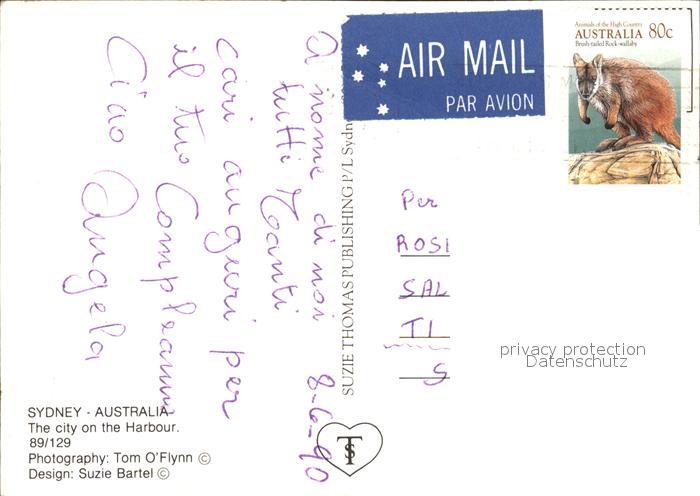 8-6-90
A nome di noi
tutti Tanti
cari auguri per
il tuo Compleanno
Ciao Angela
SUZIE THOMAS PUBLISHING P/L Sydn
AIR MAIL
PAR AVION
Animals of the High Country
AUSTRALIA 80c
Brush-tailed Rock-wallaby
Per
ROSI
SAL
TI
S
privacy protection
Datenschutz
SYDNEY - AUSTRALIA
The city on the Harbour.
89/129
Photography: Tom O'Flynn ©
Design: Suzie Bartel ©
TS